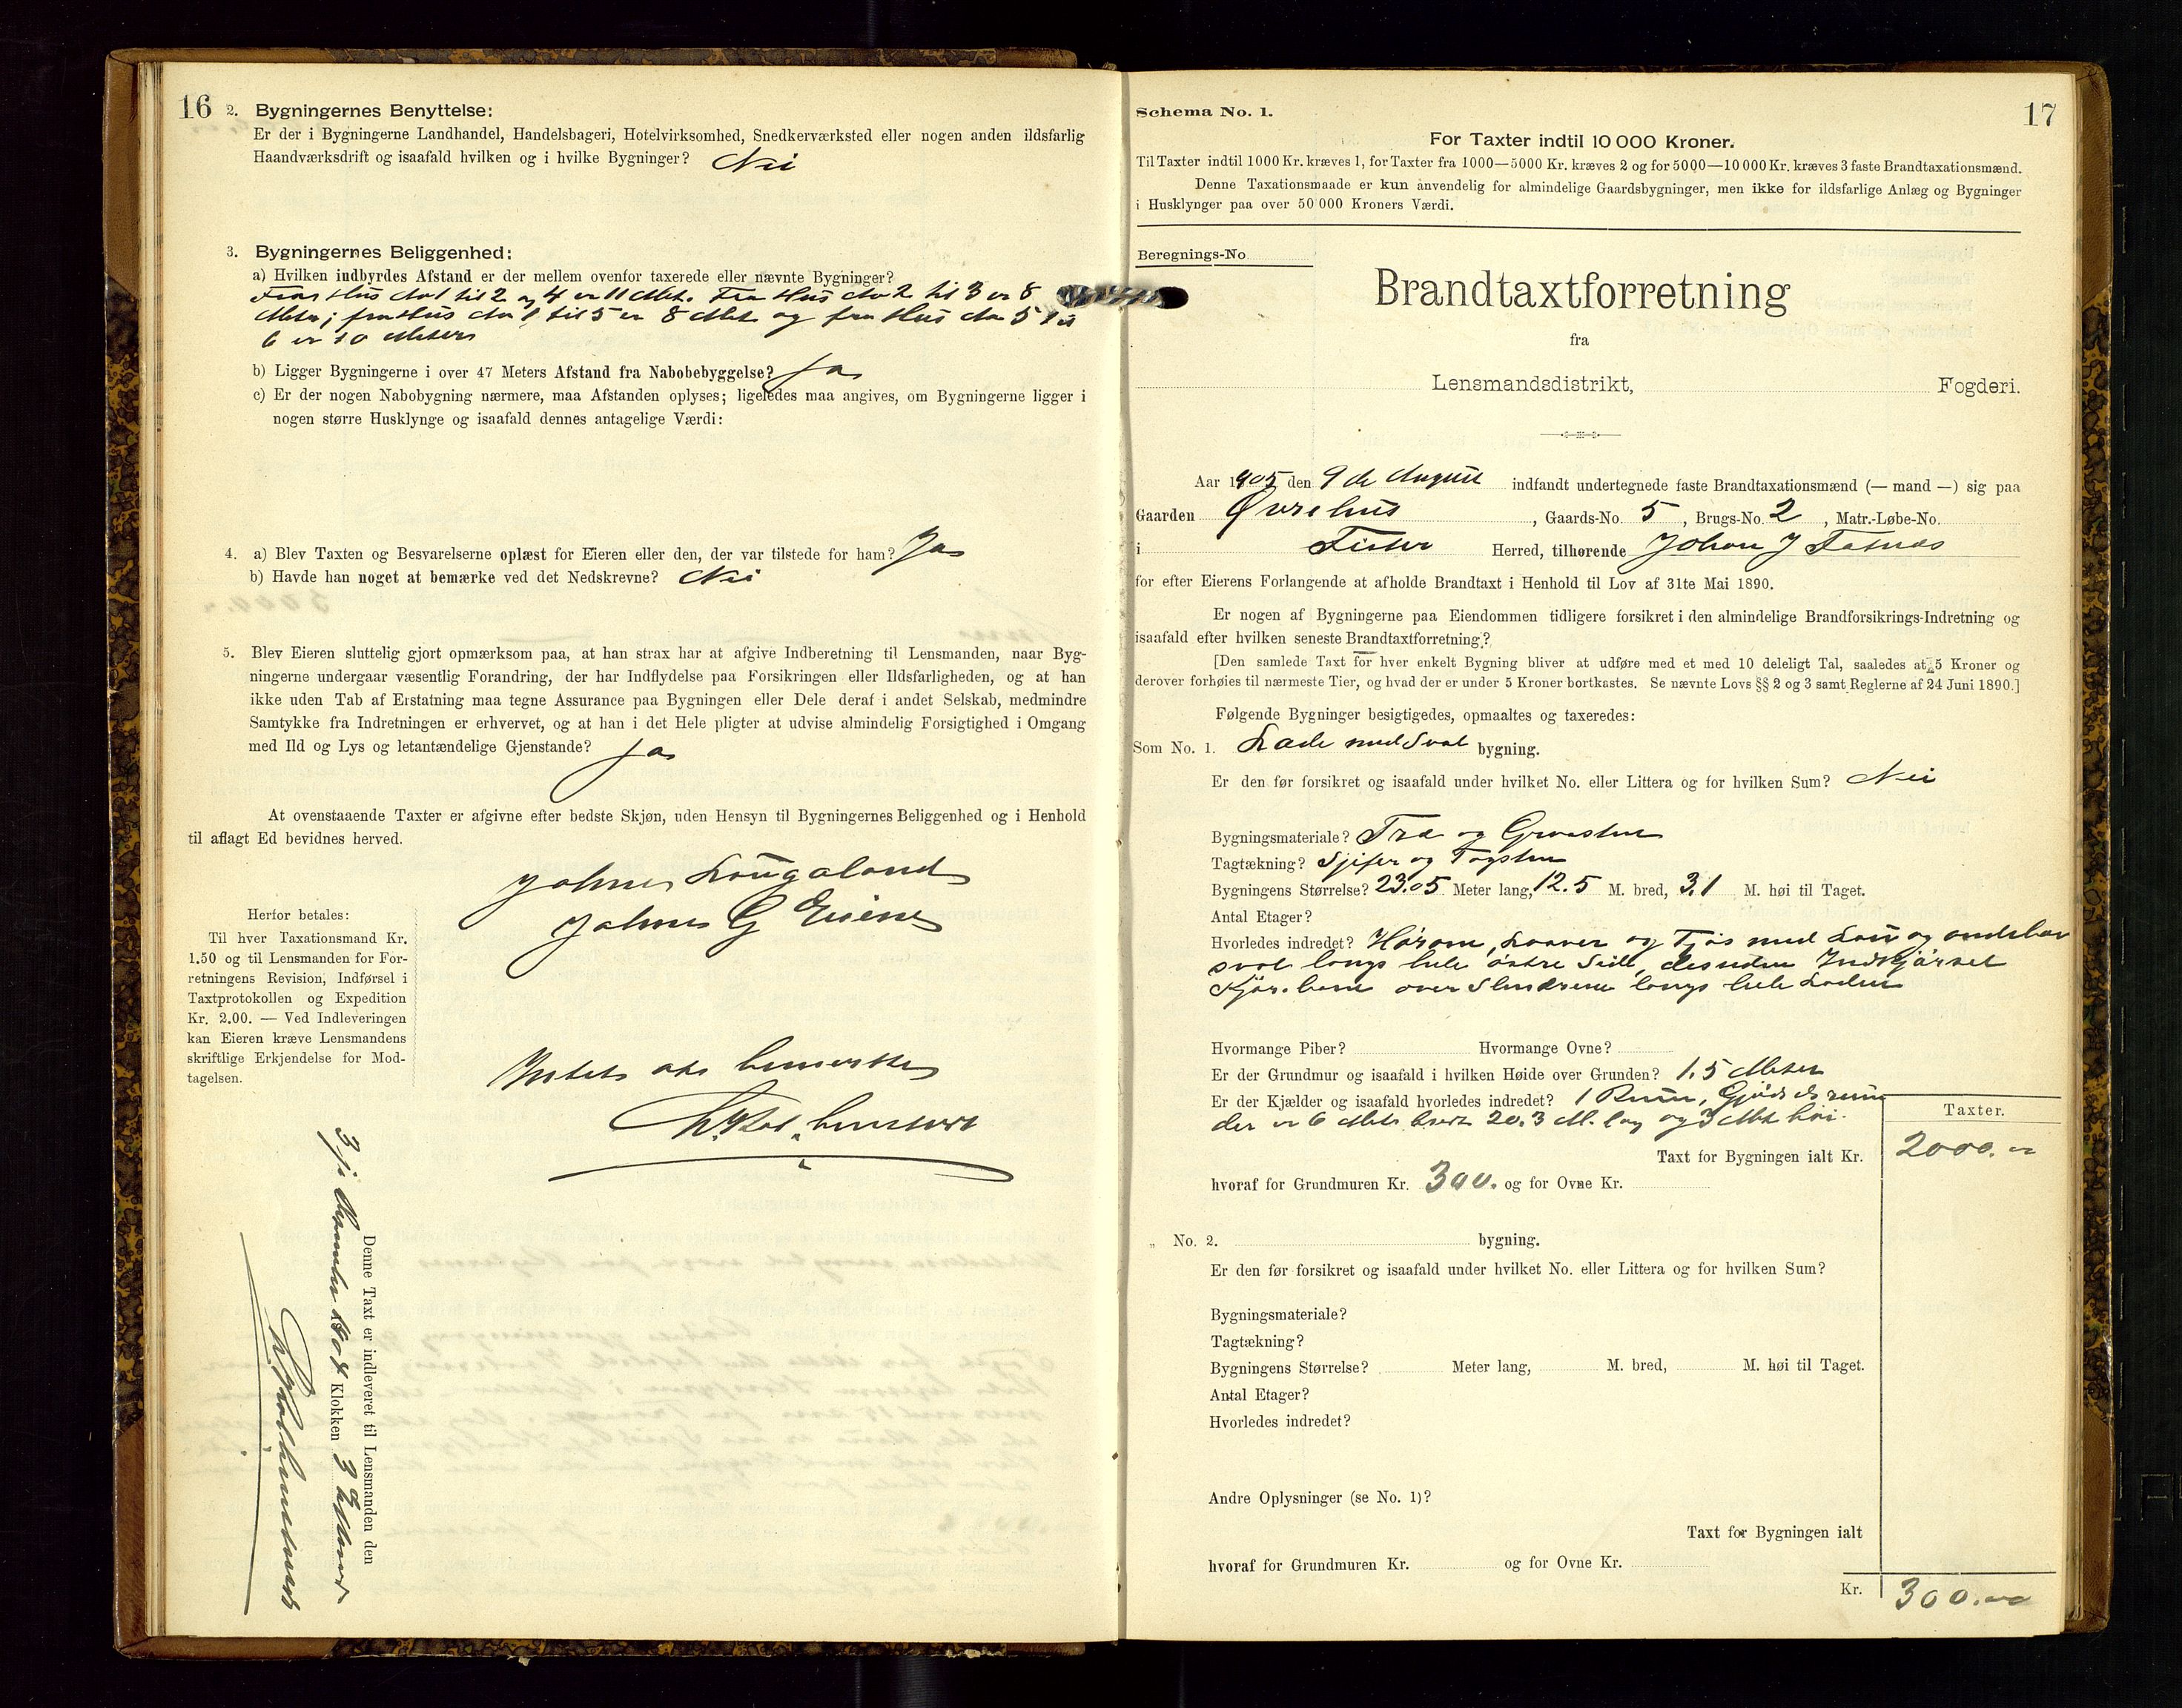 16
2. Bygningernes Benyttelse:
Er der i Bygningerne Landhandel, Handelsbageri, Hotelvirksomhed, Snedkerværksted eller nogen anden ildsfarlig
Haandværksdrift og isaafald hvilken og i hvilke Bygninger? Nei
3. Bygningernes Beliggenhed:
a) Hvilken indbyrdes Afstand er der mellem ovenfor taxerede eller nævnte Bygninger?
Fra Hus No 1 til 2 og 4 er 11 Met. Fra Hus No 2 til 3 er 8
Meter; fra Hus No 1 til 5 er 8 Met og fra Hus No 5 til
6 er 10 Meter
b) Ligger Bygningerne i over 47 Meters Afstand fra Nabobebyggelse? Ja
c) Er der nogen Nabobygning nærmere, maa Afstanden oplyses; ligeledes maa angives, om Bygningerne ligger i
nogen større Husklynge og isaafald dennes antagelige Værdi:
4. a) Blev Taxten og Besvarelserne oplæst for Eieren eller den, der var tilstede for ham? Ja
b) Havde han noget at bemærke ved det Nedskrevne? Nei
5. Blev Eieren sluttelig gjort opmærksom paa, at han strax har at afgive Indberetning til Lensmanden, naar Byg-
ningerne undergaar væsentlig Forandring, der har Indflydelse paa Forsikringen eller Ildsfarligheden, og at han
ikke uden Tab af Erstatning maa tegne Assurance paa Bygningen eller Dele deraf i andet Selskab, medmindre
Samtykke fra Indretningen er erhvervet, og at han i det Hele pligter at udvise almindelig Forsigtighed i Omgang
med Ild og Lys og letantændelige Gjenstande? Ja
At ovenstaaende Taxter er afgivne efter bedste Skjøn, uden Hensyn til Bygningernes Beliggenhed og i Henhold
til aflagt Ed bevidnes herved.
Johnes Laugaland
Johnes G
Herfor betales:
Til hver Taxationsmand Kr.
1.50 og til Lensmanden for For-
retningens Revision, Indførsel i
Taxtprotokollen og Expedition
Kr. 2.00. — Ved Indleveringen
kan Eieren kræve Lensmandens
skriftlige Erkjendelse for Mod-
tagelsen.
Intet at bemerke
Denne Taxt er indleveret til Lensmanden den
3 November 1904 Klokken 3 Efterm
Schema No. 1.
17
For Taxter indtil 10 000 Kroner.
Til Taxter indtil 1000 Kr. kræves 1, for Taxter fra 1000—5000 Kr. kræves 2 og for 5000—10 000 Kr. kræves 3 faste Brandtaxationsmænd.
Denne Taxationsmaade er kun anvendelig for almindelige Gaardsbygninger, men ikke for ildsfarlige Anlæg og Bygninger
i Husklynger paa over 50 000 Kroners Værdi.
Beregnings-No.
Brandtaxtforretning
fra
Lensmandsdistrikt, Fogderi.
Aar 1905 den 9de August indfandt undertegnede faste Brandtaxationsmænd (— mand —) sig paa
Gaarden Øvrehus, Gaards-No. 5, Brugs-No. 2, Matr.-Løbe-No.
i Fister Herred, tilhørende Johan J
for efter Eierens Forlangende at afholde Brandtaxt i Henhold til Lov af 31te Mai 1890.
Er nogen af Bygningerne paa Eiendommen tidligere forsikret i den almindelige Brandforsikrings-Indretning og
isaafald efter hvilken seneste Brandtaxtforretning?
[Den samlede Taxt for hver enkelt Bygning bliver at udføre med et med 10 deleligt Tal, saaledes at 5 Kroner og
derover forhøies til nærmeste Tier, og hvad der er under 5 Kroner bortkastes. Se nævnte Lovs §§ 2 og 3 samt Reglerne af 24 Juni 1890.]
Følgende Bygninger besigtigedes, opmaaltes og taxeredes:
Som No. 1. Lade med Sval bygning.
Er den før forsikret og isaafald under hvilket No. eller Littera og for hvilken Sum? Nei
Bygningsmateriale? Træ og Graasten
Tagtækning? Sjifer og Tagsten
Bygningens Størrelse? 23.05 Meter lang, 12.5 M. bred, 3.1 M. høi til Taget.
Antal Etager?
Hvorledes indredet? Hørom, Laaver og Fjøs med
sval langs hele østre Side, desuden Indkjørsel
over langs hele Laden
Hvormange Piber? Hvormange Ovne?
Er der Grundmur og isaafald i hvilken Høide over Grunden? 1.5 Meter
Er der Kjælder og isaafald hvorledes indredet? 1 Rum, Gjødselrum
der er 6 Met. bredt 20.3 M. lang og 3 Met høi.
Taxter.
Taxt for Bygningen ialt Kr. 2000.
hvoraf for Grundmuren Kr. 300. og for Ovne Kr.
„ No. 2. bygning.
Er den før forsikret og isaafald under hvilket No. eller Littera og for hvilken Sum?
Bygningsmateriale?
Tagtækning?
Bygningens Størrelse? Meter lang, M. bred, M. høi til Taget.
Antal Etager?
Hvorledes indredet?
Andre Oplysninger (se No. 1)?
Taxt for Bygningen ialt
hvoraf for Grundmuren Kr. og for Ovne Kr.
Kr. 300.00